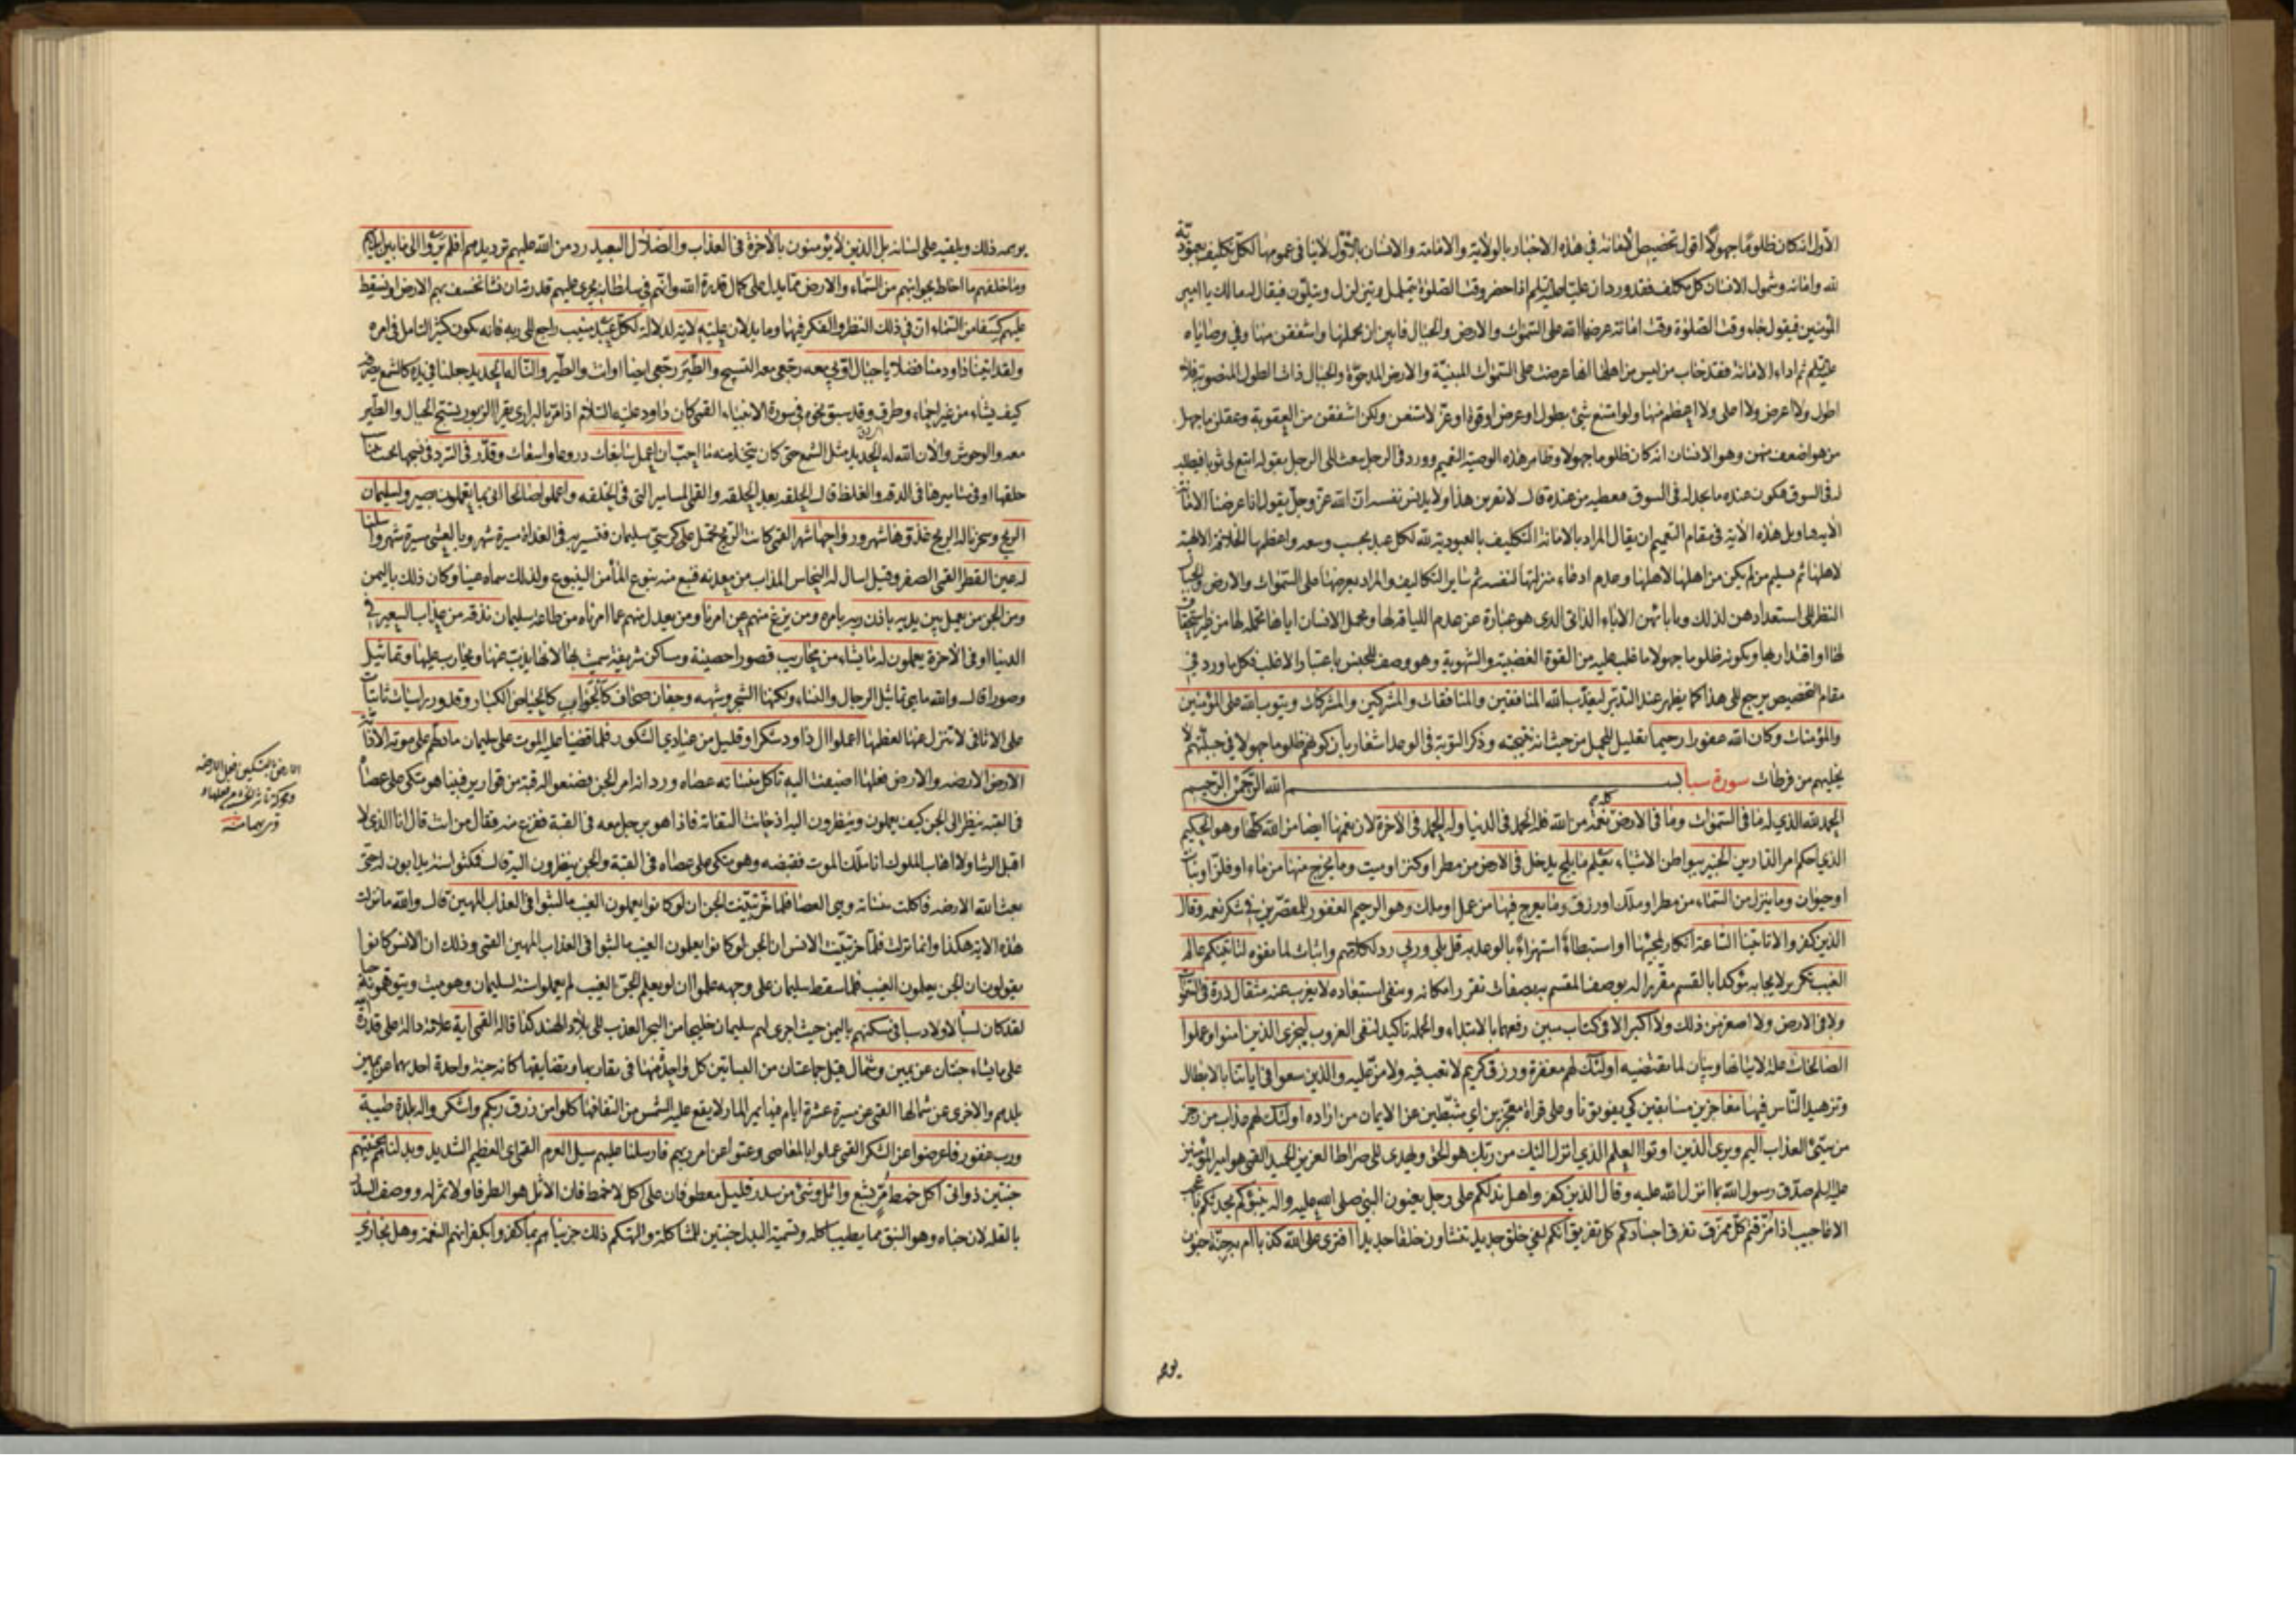 الاول انه كان ظلوما جهولا اقول تخصيص الامانة في هذه الاخبار بالولاية والامامة والانسان بالاول لاينافي عمومها لكل تكليف بعبودية
لله وامانة وشمول الانسان كل مكلف فقد ورد ان عليا عليه السلم اذا حضر وقت الصلوة يتململ ويتزلزل ويتلون فيقال له مالك يا امير
المؤمنين فيقول جاء وقت الصلوة وقت امانة عرضها الله على السموات والارض والجبال فابين ان يحملنها واشفقن منها وفي وصاياه
عليه السلم ثم اداء الامانة فقد خاب من ليس من اهلها انها عرضت على السموات المبنية والارض المدحوة والجبال ذات الطول المنصوبة فلا
اطول ولا اعرض ولا اعلى ولا اعظم منها ولو امتنع شئ بطول او عرض او قوة او عز لامتنعن ولكن اشفقن من العقوبة وعقلن ما جهل
من هو اضعف منهن وهو الانسان انه كان ظلوما جهولا وظاهر هذه الوصية التعميم وورد في الرجل يبعث الى الرجل يقول له ابتع لي ثوبا فيطلب
له في السوق فيكون عنده ما يجد له في السوق فيعطيه من عنده قال لا تقربن هذا ولا يدنس نفسه ان الله عز وجل يقول انا عرضنا الامانة
الاية وتاويل هذه الآية في مقام التعميم ان يقال المراد بالامانة التكليف بالعبودية لله لكل عبد بحسب وسعه واعظمها الخلافة الالهية
لاهلها ثم تسليم من لم يكن من اهلها لاهلها وعدم ادعاء منزلتها لنفسه ثم سائر التكاليف والمراد بعرضها على السموات والارض والجبال
النظر الى استعدادهن لذلك وبابائهن الاباء الذاتي الذي هو عبارة عن عدم اللياقة لها وبحمل الانسان اياها تحمله لها من غير استحقاق
لها او اقتدار لها وبكونه ظلوما جهولا ما غلب عليه من القوة الغضبية والشهوية وهو وصف للجنس باعتبار الاغلب فكل ما ورد في
مقام التخصيص يرجع الى هذا كما يظهر عند التدبر ليعذب الله المنافقين والمنافقات والمشركين والمشركات ويتوب الله على المؤمنين
والمؤمنات وكان الله غفورا رحيما تعليل للحمل من حيث انه نتيجته وذكر التوبة في الوعد اشعار بان كونهم ظلوما جهولا في جبلتهم لا
يخليهم من فرطات سورة سبا بسم الله الرحمن الرحيم
الحمد لله الذي له ما في السموات وما في الارض كله نعمة من الله فله الحمد في الدنيا وله الحمد في الآخرة لان نعمها ايضا من الله كلها وهو الحكيم
الذي احكم امر الدارين الخبير ببواطن الاشياء يعلم ما يلج يدخل في الارض من مطر او كنز او ميت وما يخرج منها من ماء او فلز او نبات
او حيوان وما ينزل من السماء من مطر او ملك او رزق وما يعرج فيها من عمل او ملك وهو الرحيم الغفور للمقصرين في شكر نعمه وقال
الذين كفروا لا تاتينا الساعة انكار لمجيئها او استبطاء استهزاء بالوعد به قل بلى وربي رد لكلامهم واثبات لما نفوه لتاتينكم عالم
الغيب تكرير لايجابه مؤكدا بالقسم مقررا له بوصف المقسم به بصفات تقرر امكانه وينفي استبعاده لا يعزب عنه مثقال ذرة في السموات
ولا في الارض ولا اصغر من ذلك ولا اكبر الا في كتاب مبين رفعهما بالابتداء والجملة تاكيد لنفي العزوب ليجزي الذين امنوا وعملوا
الصالحات علة لاتيانها وبيان لما يقتضيه اولئك لهم مغفرة ورزق كريم لا تعب فيه ولا من عليه والذين سعوا في اياتنا بالابطال
وتزهيد الناس فيها معاجزين مسابقين كي يفوتونا وعلى قراءة معجزين اي مثبطين عن الايمان من اراده اولئك لهم عذاب من رجز
من سيئ العذاب اليم ويرى الذين اوتوا العلم الذي انزل اليك من ربك هو الحق ويهدي الى صراط العزيز الحميد القمي هو امير المؤمنين
عليه السلم صدق رسول الله بما انزل الله عليه وقال الذين كفروا هل ندلكم على رجل يعنون النبي صلى الله عليه واله ينبؤكم يحدثكم باعجب
الاعاجيب اذا مزقتم كل ممزق تفرق اجسادكم كل تفريق انكم لفي خلق جديد تنشاون خلقا جديدا افترى على الله كذبا ام به جنة جنون
يوهمه
يوهمه ذلك ويلقيه على لسانه بل الذين لا يؤمنون بالآخرة في العذاب والضلال البعيد رد من الله عليهم ترديدهم افلم يروا الى ما بين ايديهم
وما خلفهم ما احاط بجوانبهم من السماء والارض مما يدل على كمال قدرة الله وانهم في سلطانه يجري عليهم قدرته ان نشا نخسف بهم الارض او نسقط
عليهم كسفا من السماء ان في ذلك النظر والفكر فيهما وما يدلان عليه لاية لدلالة لكل عبد منيب راجع الى ربه فانه يكون كثير التامل في امره
ولقد اتينا داود منا فضلا يا جبال اوبي معه رجعي معه التسبيح والطير رجعي ايضا او انت والطير والنا له الحديد جعلنا في يده كالشمع يصرفه
كيف يشاء من غير احماء وطرق وقد سبق نحوه في سورة الانبياء القمي كان داود عليه السلام اذا مر بالبراري يقرا الزبور يسبح الجبال والطير
معه والوحوش والان الله له الحديد مثل الشمع حتى كان يتخذ منه ما احب ان اعمل سابغات دروعا واسعات وقدر في السرد في نسجها بحيث يتناسب
حلقها او في مساميرها في الدقة والغلظ قال الحلقة بعد الحلقة والقمي المسامير التي في الحلقة واعملوا صالحا اني بما تعملون بصير ولسليمان
الريح وسخرنا له الريح غدوها شهر ورواحها شهر القمي كانت الريح تحمل على كرسي سليمان فتسير به في الغداة مسيرة شهر وبالعشي مسيرة شهر واسلنا
له عين القطر القمي الصفر وقيل اسال له النحاس المذاب من معدنه فنبع منه نبوع الماء من الينبوع ولذلك سماه عينا وكان ذلك باليمن
ومن الجن من يعمل بين يديه باذن ربه بامره ومن يزغ منهم عن امرنا ومن يعدل منهم عما امرناه من طاعة سليمان نذقه من عذاب السعير في
الدنيا او في الآخرة يعملون له ما يشاء من محاريب قصورا حصينة ومساكن شريفة سميت بها لانها يذب عنها ويحارب عليها وتماثيل
وصورا قال والله ما هي تماثيل الرجال والنساء ولكنها الشجر وشبهه وجفان صحاف كالجواب كالحياض الكبار وقدور راسيات ثابتات
على الاثافي لا تنزل عنها لعظمها اعملوا ال داود شكرا وقليل من عبادي الشكور فلما قضينا عليه الموت على سليمان ما دلهم على موته الا دابة
الارض الارضة والارض فعلها اضيفت اليه تاكل منساته عصاه ورد انه امر الجن فصنعوا له قبة من قوارير فبينا هو متكئ على عصاه
في القبة ينظر الى الجن كيف يعملون وينظرون اليه اذ حانت التفاتة فاذا هو برجل معه في القبة ففزع منه فقال من انت قال انا الذي لا
اقبل الرشا ولا اهاب الملوك انا ملك الموت فقبضه وهو متكئ على عصاه في القبة والجن ينظرون اليه قال فمكثوا سنة يدابون له حتى
بعث الله الارضة فاكلت منساته وهي العصا فلما خر تبينت الجن ان لو كانوا يعملون الغيب ما لبثوا في العذاب المهين قال والله ما نزلت
هذه الاية هكذا وانما نزلت فلما خر تبينت الانس ان الجن لو كانوا يعلمون الغيب ما لبثوا في العذاب المهين القمي وذلك ان الانس كانوا
يقولون ان الجن يعلمون الغيب فلما سقط سليمان على وجهه علموا ان لو يعلم الجن الغيب لم يعملوا سنة لسليمان وهو ميت ويتوهمونه حيا
لقد كان لسبا لاولاد سبا في مسكنهم باليمن حيث اجرى لهم سليمان خليجا من البحر العذب الى بلاد الهند كذا قاله القمي اية علامة دالة على قدرة الله
على ما يشاء جنتان عن يمين وشمال قيل جماعتان من البساتين كل واحدة منها في تقاربها وتضايقها كانه جنة واحدة احديهما عن يمين
بلدهم والاخرى عن شمالها القمي عن مسيرة عشرة ايام فيها يمر المار لا يقع عليه الشمس من التفافها كلوا من رزق ربكم واشكروا له بلدة طيبة
ورب غفور فاعرضوا عن الشكر القمي عملوا بالمعاصي وعتوا عن امر ربهم فارسلنا عليهم سيل العرم القمي اي العظيم الشديد وبدلناهم بجنتيهم
جنتين ذواتي اكل خمط مر بشع واثل وشئ من سدر قليل معطوفان على اكل لا خمط فان الاثل هو الطرفا ولا ثمر له ووصف السدر
بالقلة لان جناه وهو النبق مما يطيب اكله وتسمية البدل جنتين للمشاكلة والتهكم ذلك جزيناهم بما كفروا بكفرانهم النعمة وهل نجازي